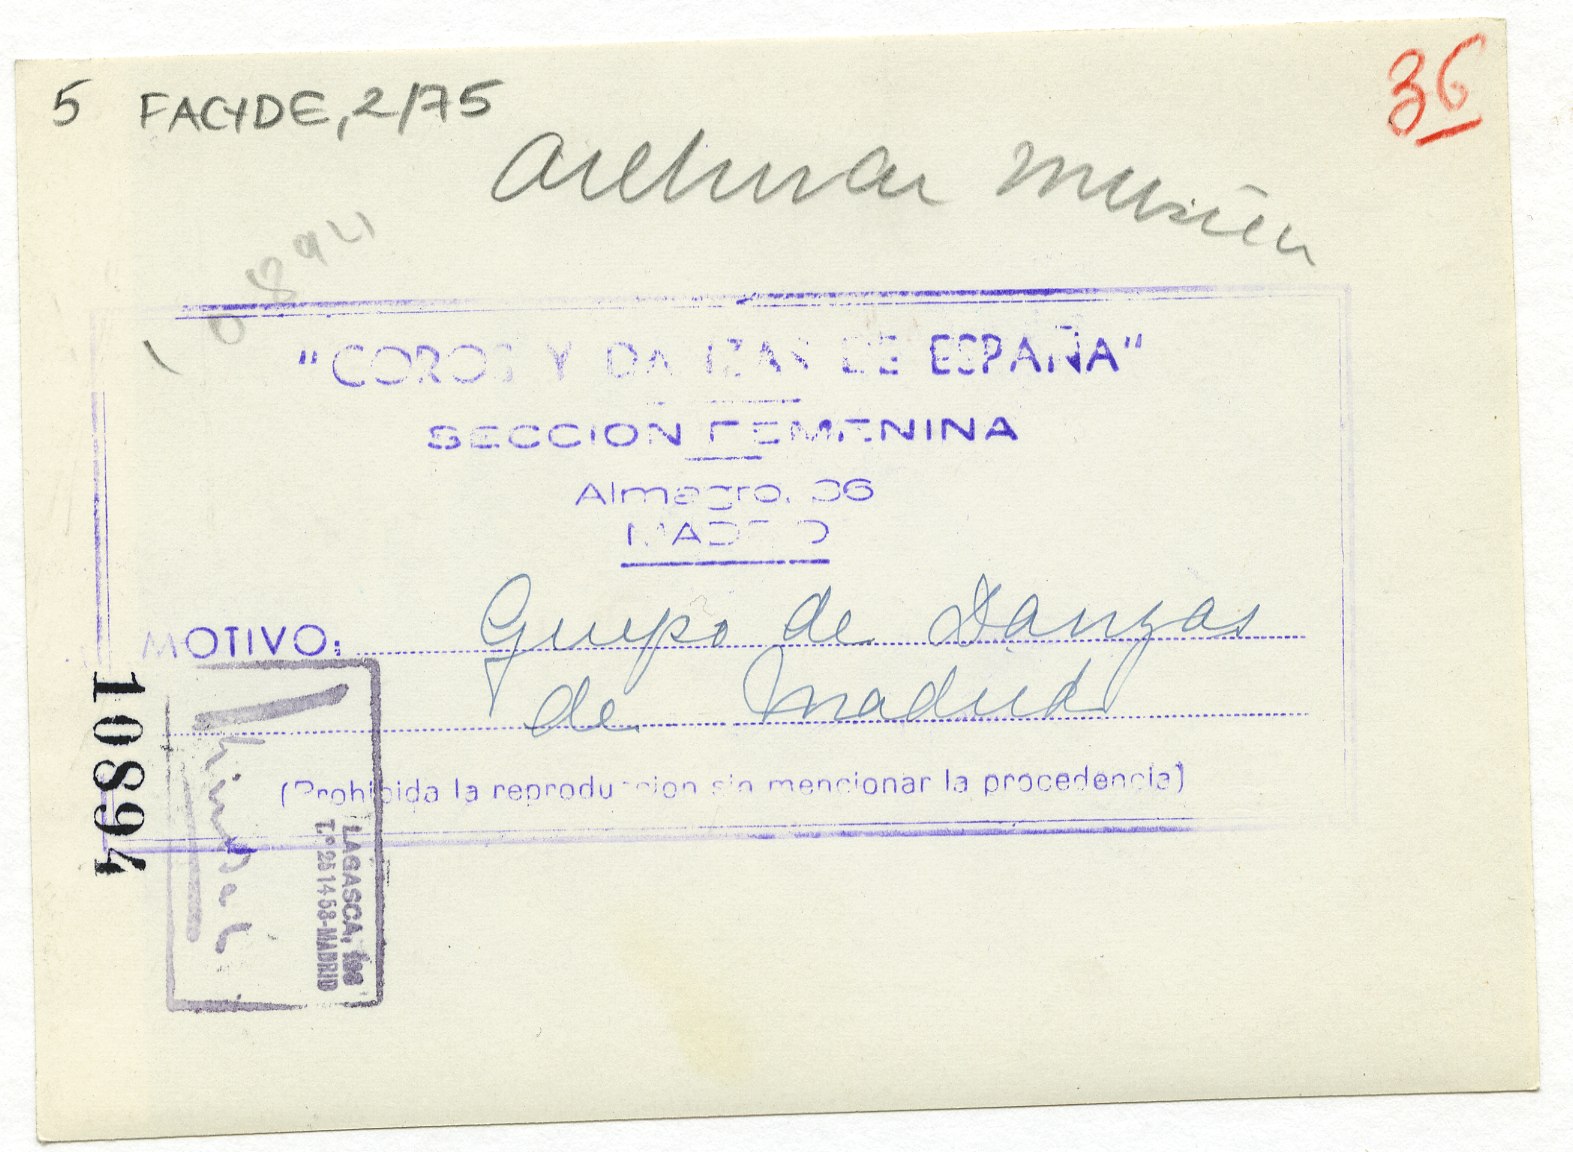 5 FACYDE, 2/75
36
Archivar
10894
"COROS Y DANZAS DE ESPAÑA"
SECCION FEMENINA
Almagro, 36
MADRID
MOTIVO: Grupo de Danzas
de Madrid
(Prohibida la reproduccion sin mencionar la procedencia)
10894
LAGASCA,
MADRID